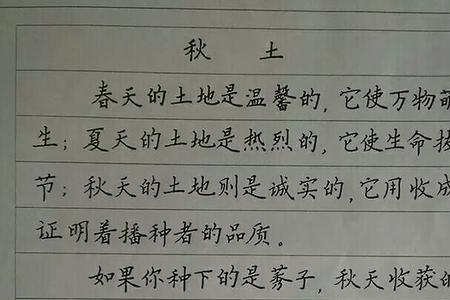 秋 土
春天的土地是温馨的，它使万物萌
生；夏天的土地是热烈的，它使生命拔
节；秋天的土地则是诚实的，它用收成
证明着播种者的品质。
如果你种下的是莠子，秋天收获的